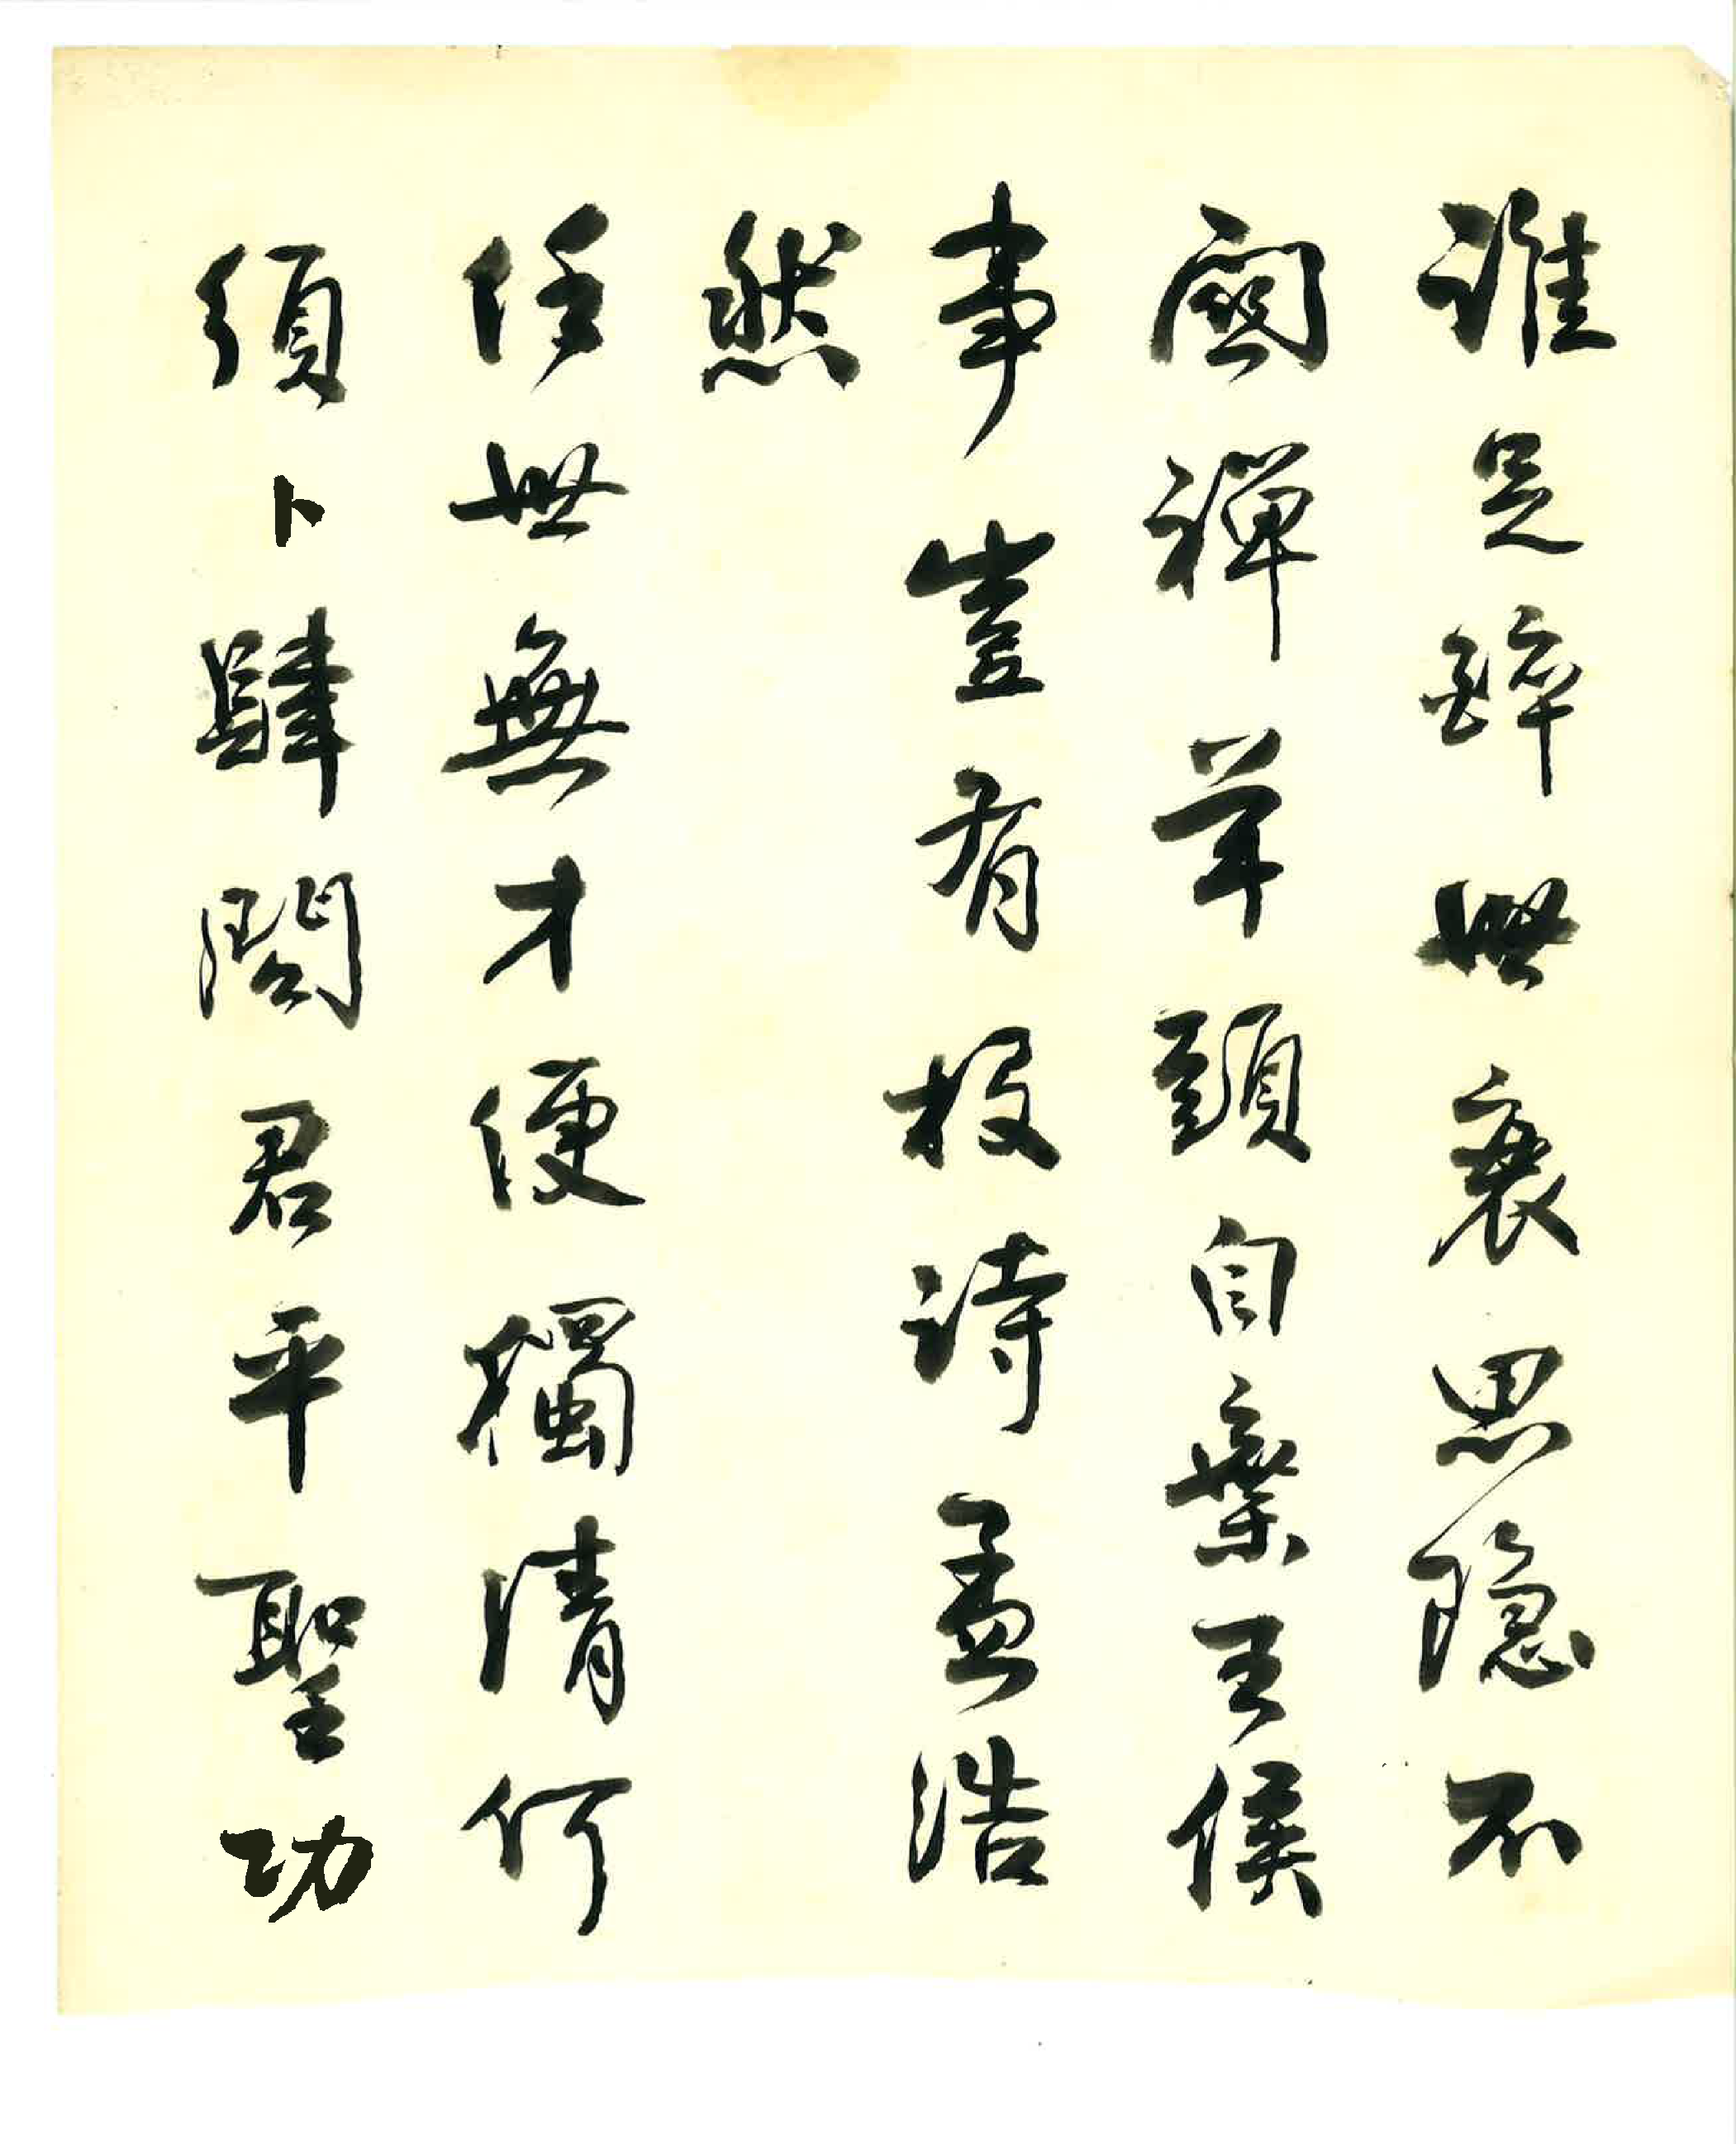 誰是醉世衰思隱不
關禪羊頭自棄王侯
事豈有投詩孟浩
然
任世無才便獨清何
須卜肆閱君平聖功